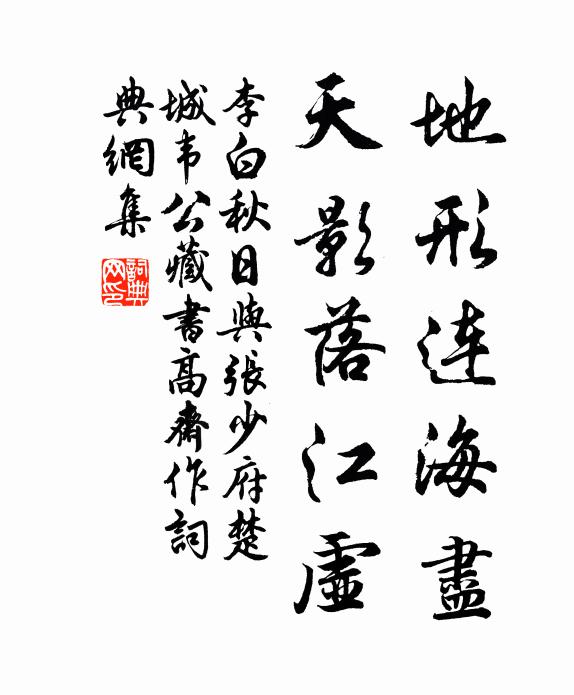 地形连海盡
天影落江虛
李白秋日與張少府楚
城韦公藏書高齋作詞
典網集
詞典网印